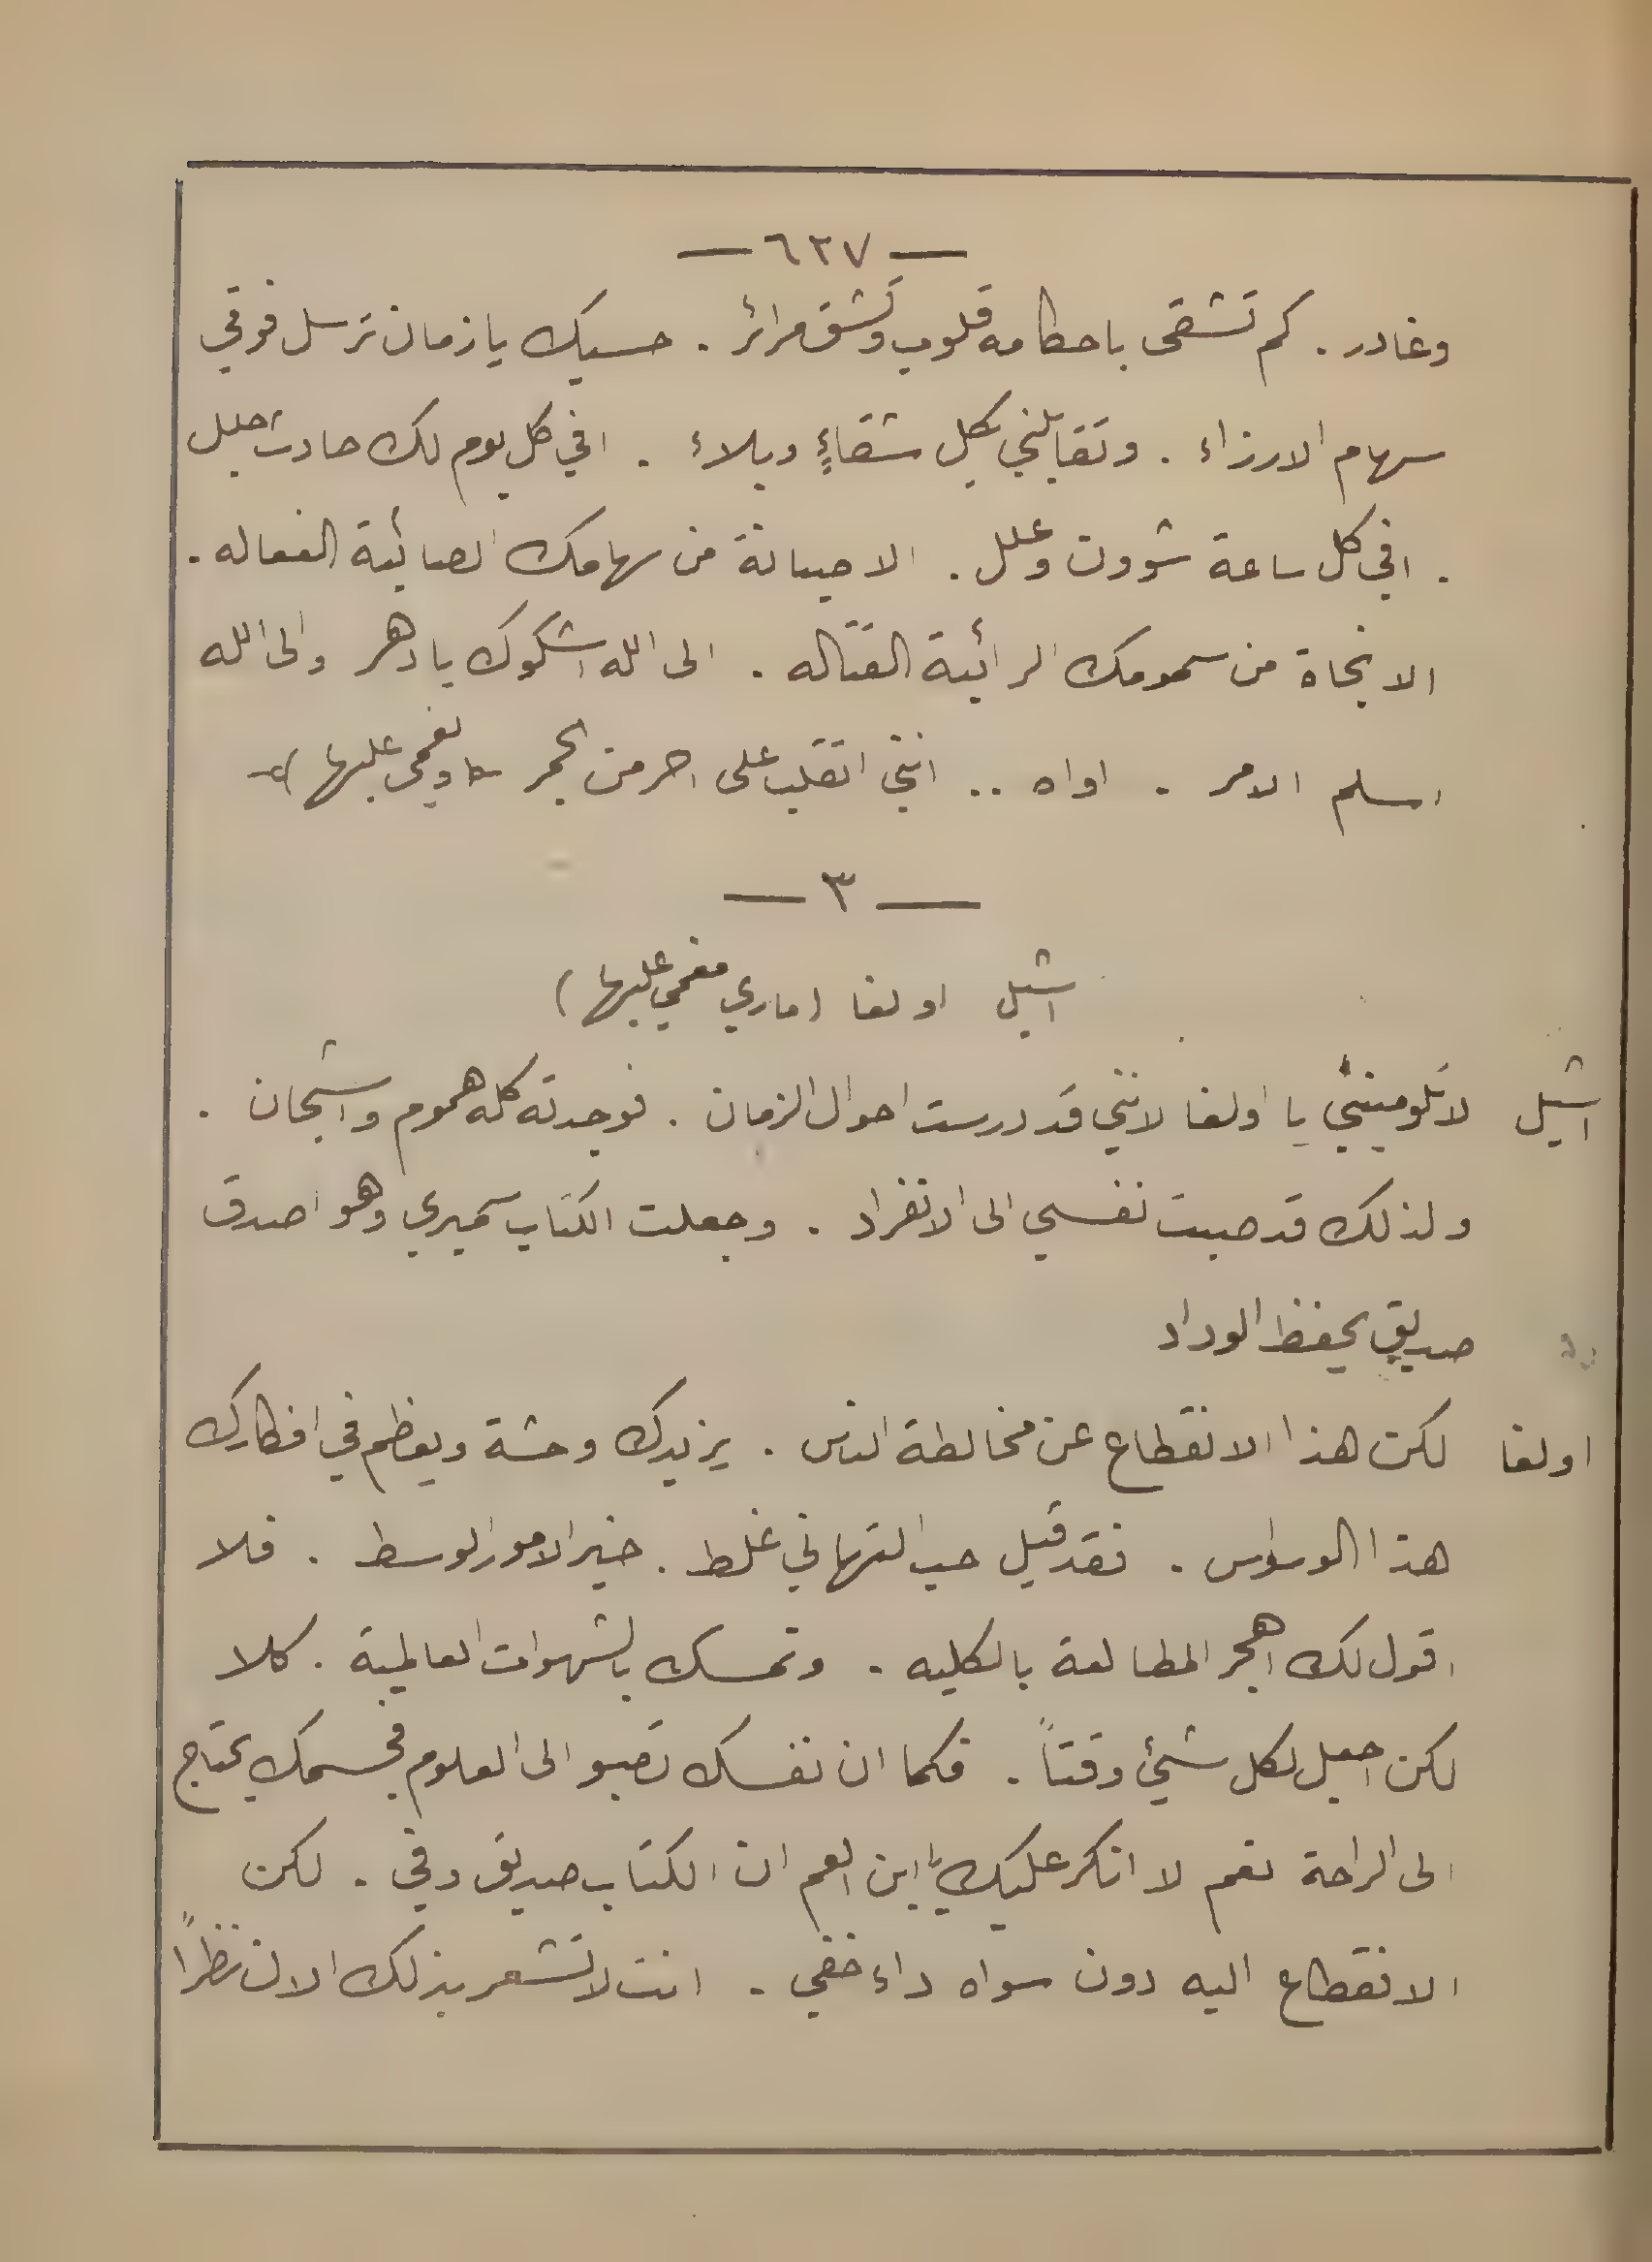 — ٦٢٧ —
وغادر . كم تشقى باحكامه قلوب وتشق مرائر . حسبك يا زمان ترسل فوقي
سهام الارزاء . وتقابلني بكل شقاءٍ وبلاء . افي كل يوم لك حادث جلل
. افي كل ساعة شوون وعلل . الا صيانة من سهامك الصائبة الفعاله .
الا نجاة من سمومك الرائبة القتاله . الى الله اشكوك يا دهر والى الله
اسلم الامر . اواه .. انني اتقلب على احر من الجمر (ويغمى عليها)
— ٣ —
اشيل اولغا (ماري مغمي عليها)
اشيل لا تلومينني يا اولغا لانني قد درست احوال الزمان . فوجدته كله هموم واشجان .
ولذلك قد صبت نفسي الى الانفراد . وجعلت الكتاب سميري وهو اصدق
صديق يحفظ الوداد
اولغا لكن هذا الانقطاع عن مخالطة الناس . يزيدك وحشة ويعظم في افكارك
هذا الوسواس . فقد قيل حب التهاني غلط . خير الامور الوسط . فلا
اقول لك اهجر المطالعة بالكليه . وتمسك بالشهوات العالمية . كلا
لكن اجعل لكل شيئ وقتاً . فكما ان نفسك تصبو الى العلوم فجسمك يحتاج
الى الراحة نعم لا انكر عليك يا ابن العم ان الكتاب صديق وفي . لكن
الانقطاع اليه دون سواه داء خفي . انت لا تشعر بذلك الان نظراً